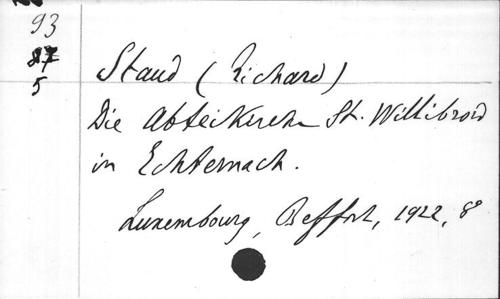 93
87
5
Staud (Richard)
Die Abteikirche St. Willibrord
in Echternach.
Luxembourg, Beffort, 1922, 8°